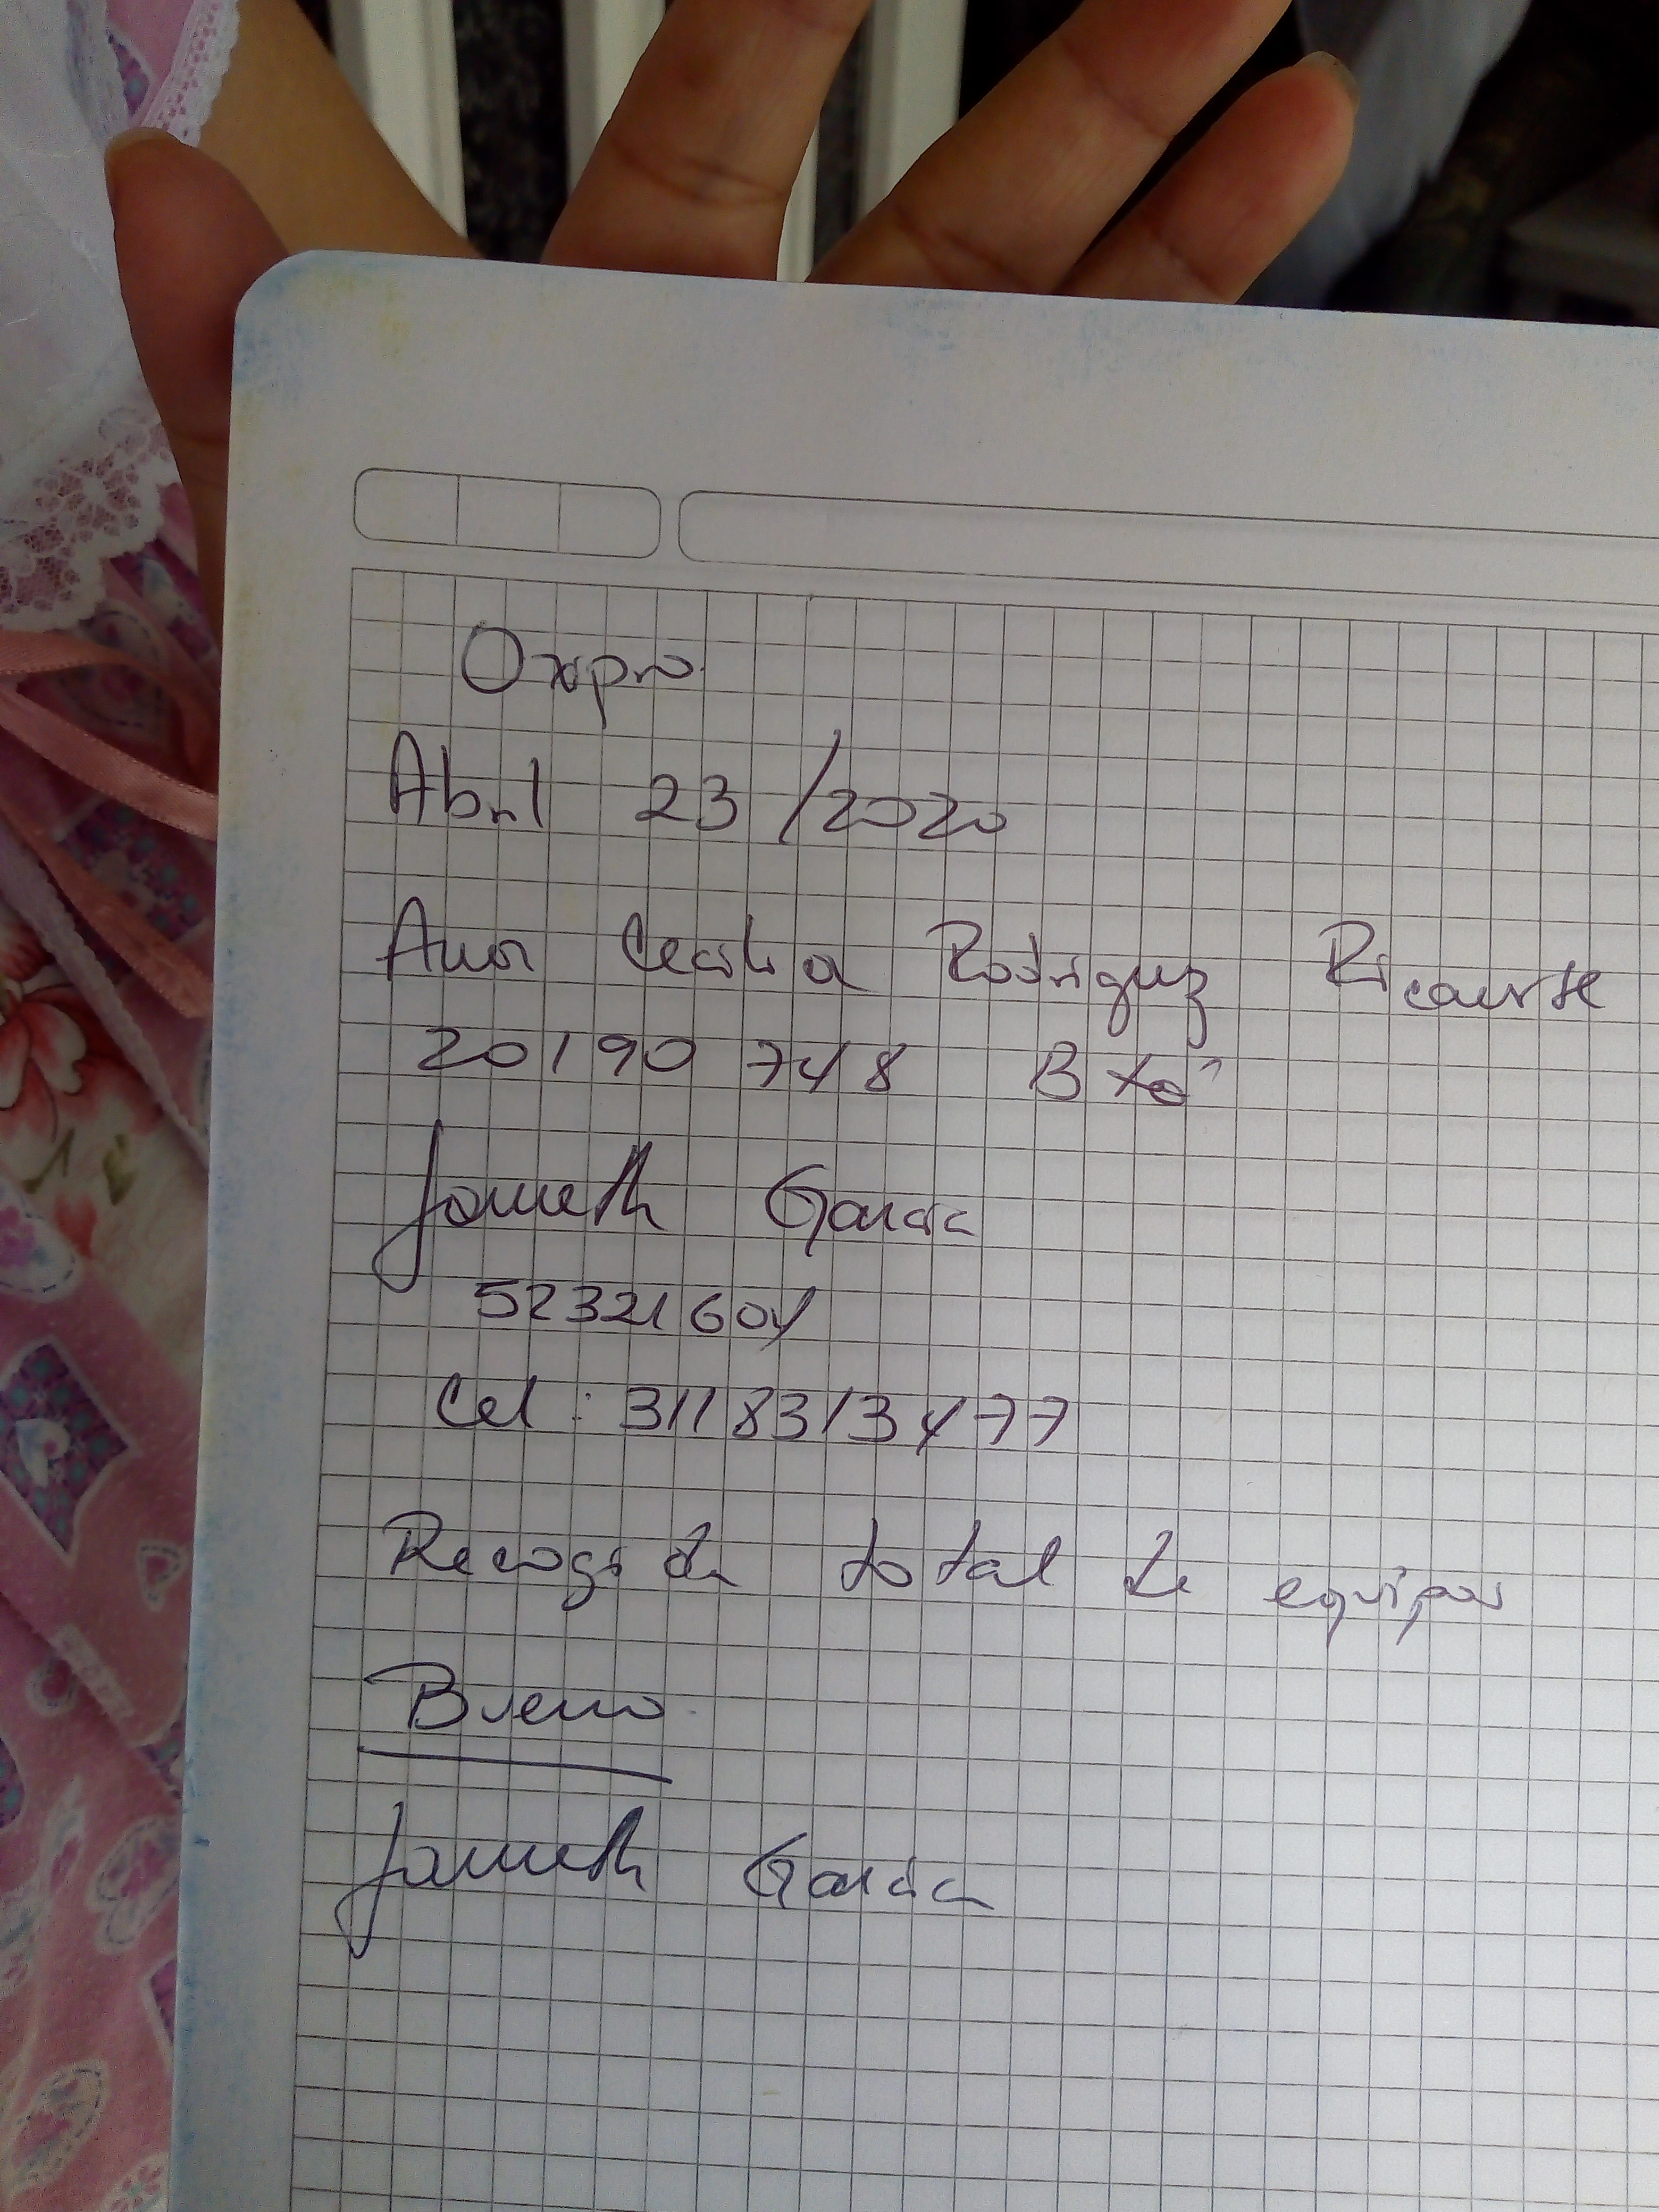 Oxpro
Abril 23/2020
Ana Cecilia Rodriguez Ricaurte
20190748 Btá
Janneth Garcia
52321604
Cel: 3118313477
Recogida total de equipos
Bueno
Janneth Garcia